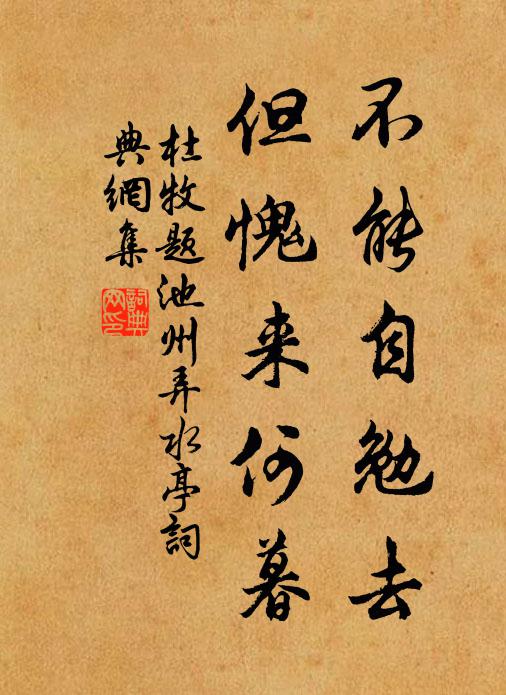 不能自勉去
但愧来何暮
杜牧题池州弄水亭詞
典網集
詞典
网印